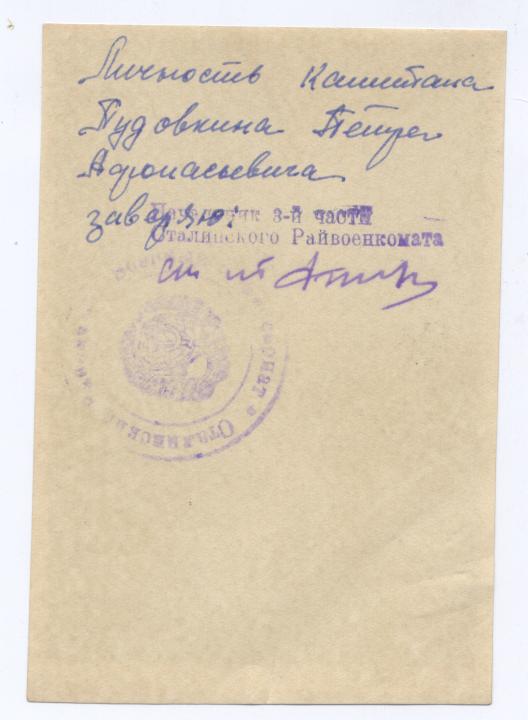 Личность капитана
Пудовкина Петра
Афонасьевича
заверяю:
Начальник 3-й части
Сталинского Райвоенкомата
ст л-т
Сталинский